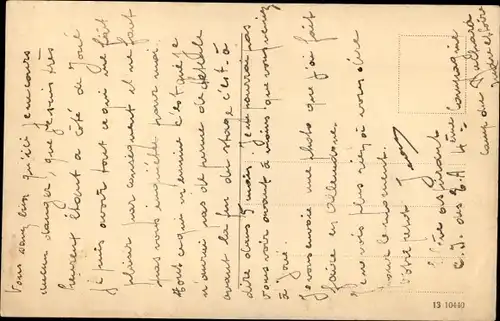 Vous voyez bien qu'ici je ne cours
aucun danger, que je suis très
heureux étant à côté de Joué
je puis avoir tout ce qui me fait
plaisir par conséquent il ne faut
pas vous inquiéter pour moi.
tout ce qui m'ennuie c'est que je
n'aurai pas de perme de
avant la fin du stage c'est-à-
dire dans 5 mois je ne pourrai pas
vous voir avant à moins que vous veniez
à Joué.
Je vous envoie une photo que j'ai fait
faire en Allemagne.
Je ne vois plus rien à vous dire
pour le moment.
Votre petit Jean
Elève aspirant
C.I. des E.A. 4ème Compagnie
camp du Ruchard
Indre et Loire
13 10440